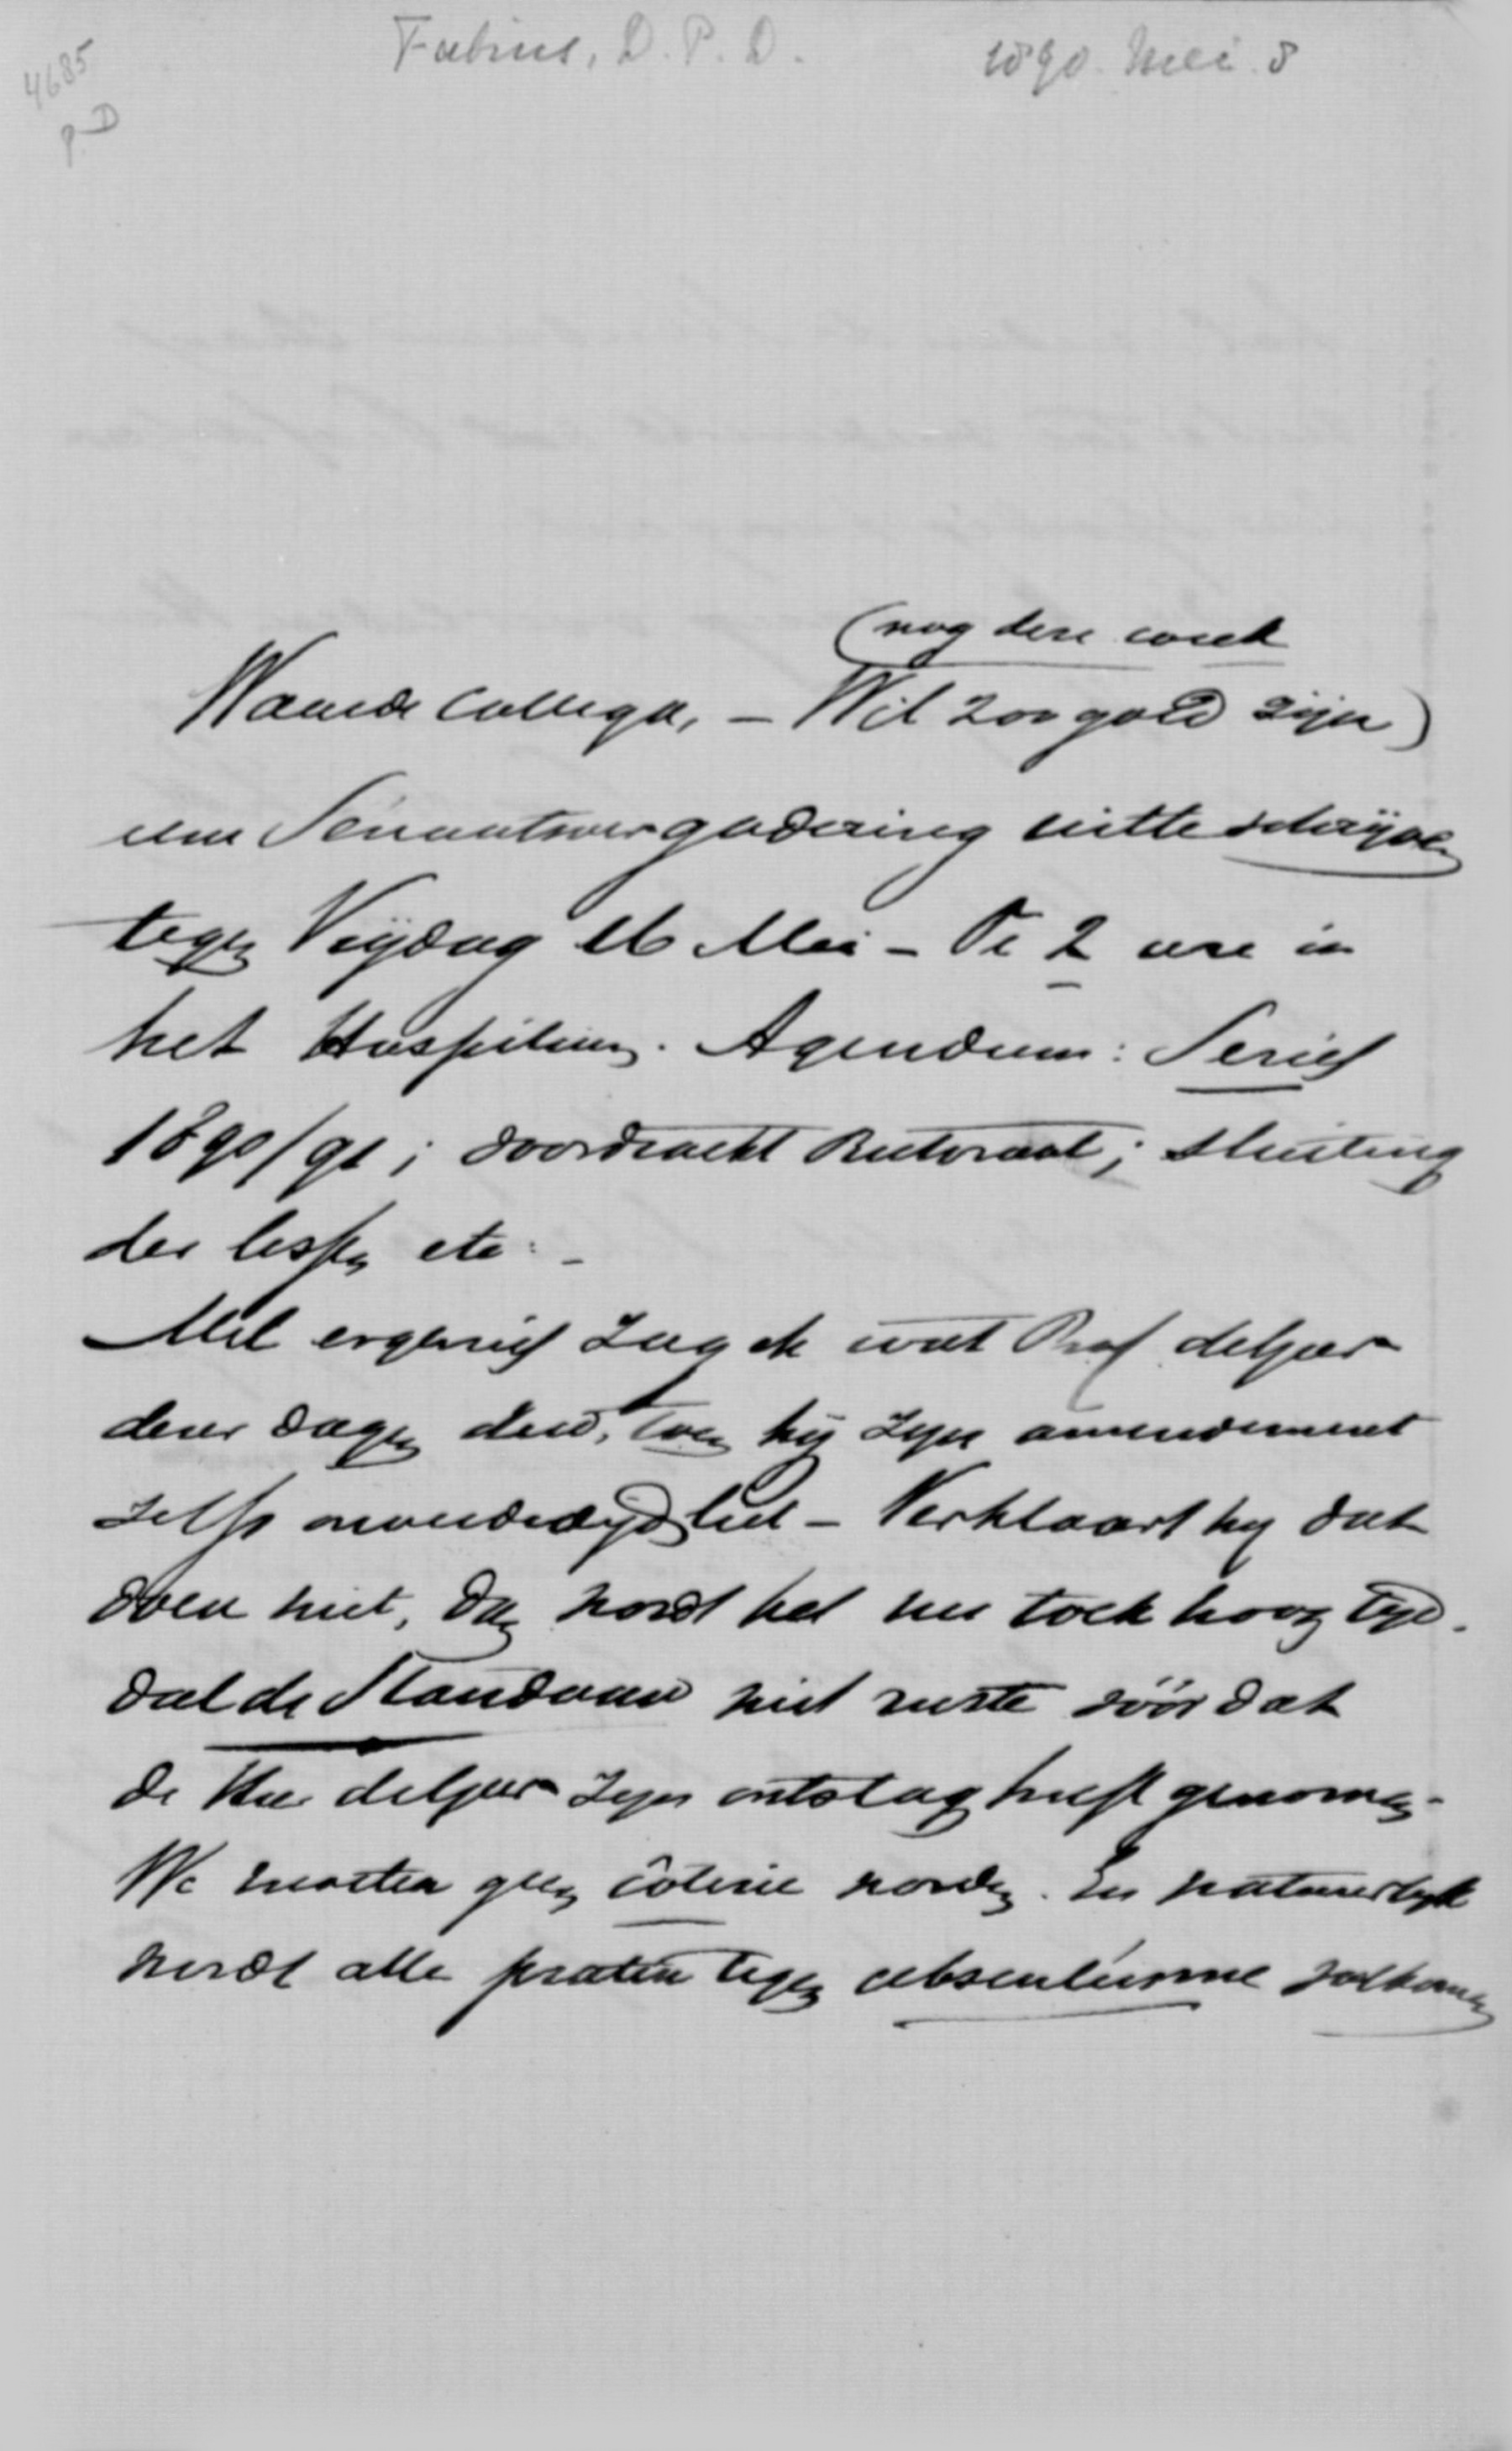 Fabius, D. P. D. 1890. Mei. 8
4685
P. D
(nog deze week
Waarde Collega, – Wil zoo goed zijn)
eene Senaatsvergadering uitteschrijven
tegen Vrijdag 16 Mei – Te 2 ure in
het Hospitium. Agendum: Series
1890/91; voordracht Rectoraat; sluiting
der lessen etc: –
Met ergernis zag ik wat Prof. de Geer
dezer dagen deed, toen hij zijn amendement
zelfs onverdedigd liet – Verklaart hij dat
doen niet, dan wordt het nu toch hoog tijd.
dat de Standaard niet ruste vóór dat
de Heer de Geer zijn ontslag heeft genomen.
We moeten geen coterie worden. En natuurlijk
wordt alle praten tegen absenteïsme volkomen